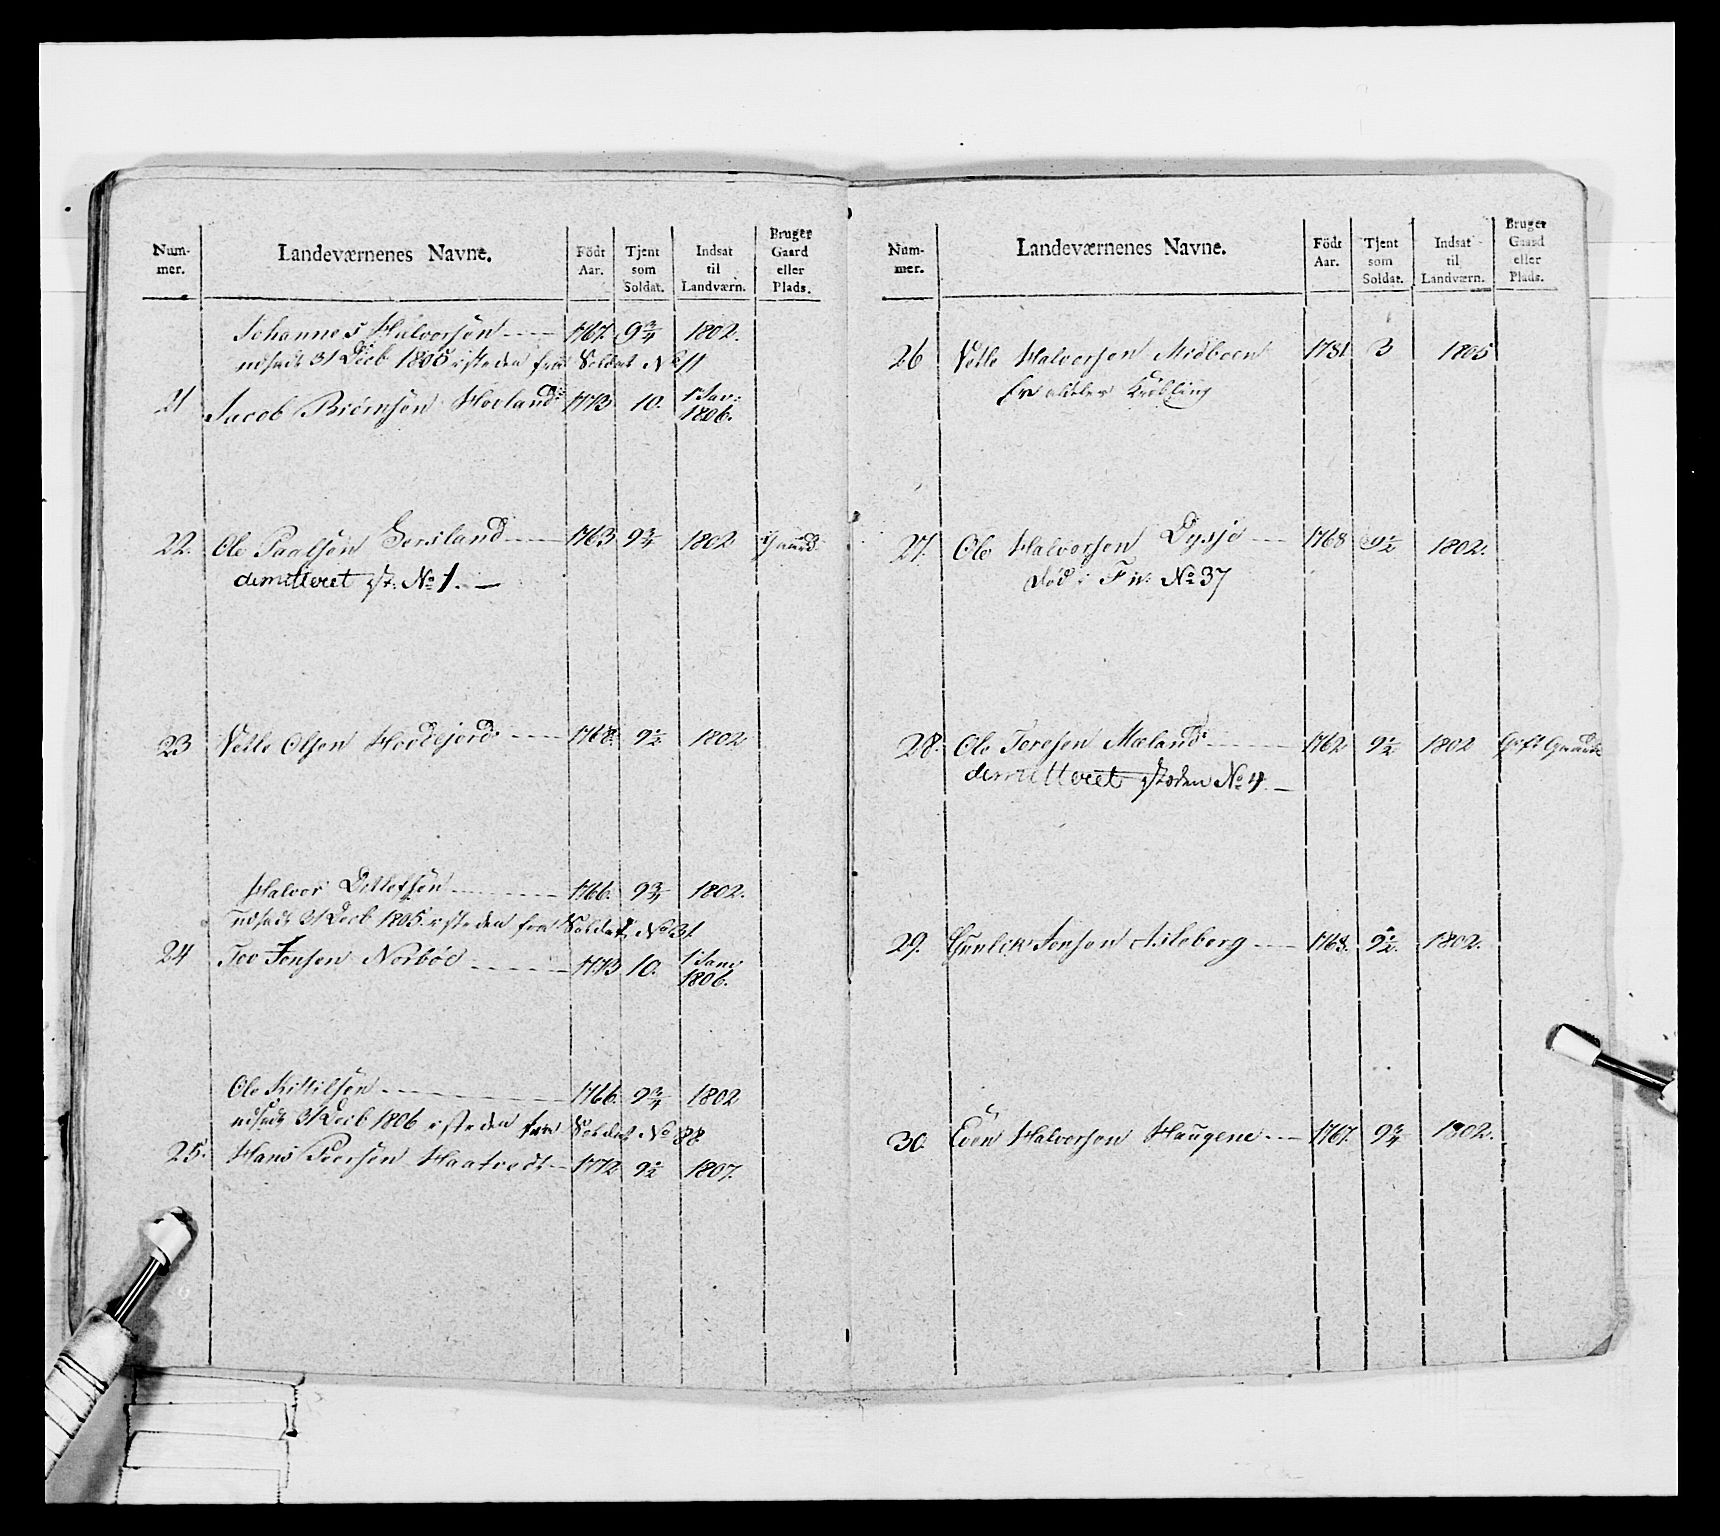 Num-
mer.
Landeværnenes Navne.
Födt
Aar.
Tjent
som
Soldat.
Indsat
til
Landværn.
Bruger
Gaard
eller
Plads.
Johannes Halvorsön 1767. 9 3/4 1802.
udsadt 31 Decb 1805 isteden fra Soldat No 11
21 Jacob Biörnsön Hörland 1773 10. 1 Jan: 1806.
22. Ole Paalsön 1763 9 3/4 1802 Gaard.
demitteret No 1.
23 Vetle Olsen 1768. 9 1/2 1802
Halvor Ditlefsön 1766. 9 3/4 1802.
udsadt 31 Decb 1805. isteden fra Soldat No 31
24 Tov Jensen Norböe 1773 10. 1 Jan: 1806.
Ole Kittilsön 1766. 9 3/4 1802
udsadt 31 Decb 1806 isteden fra Soldat No 88
25. Hans Peersön Haatvedt 1772 9 1/2 1807.
Num-
mer.
Landeværnenes Navne.
Födt
Aar.
Tjent
som
Soldat.
Indsat
til
Landværn.
Bruger
Gaard
eller
Plads.
26 Vetle Halvorsen Midboen 1781 3 1805
Er aldeles Kröbling
27. Ole Halvorsen Dysjö 1768 9 1/2 1802.
död No 37
28. Ole Meland 1762 9 1/2 1802 Gift Gaard
demitteret No 4.
29. Gunlek Jensen Aslaberg 1768. 9 1/2. 1802.
30. Even Halvorsen Haugene 1767. 9 3/4 1802.